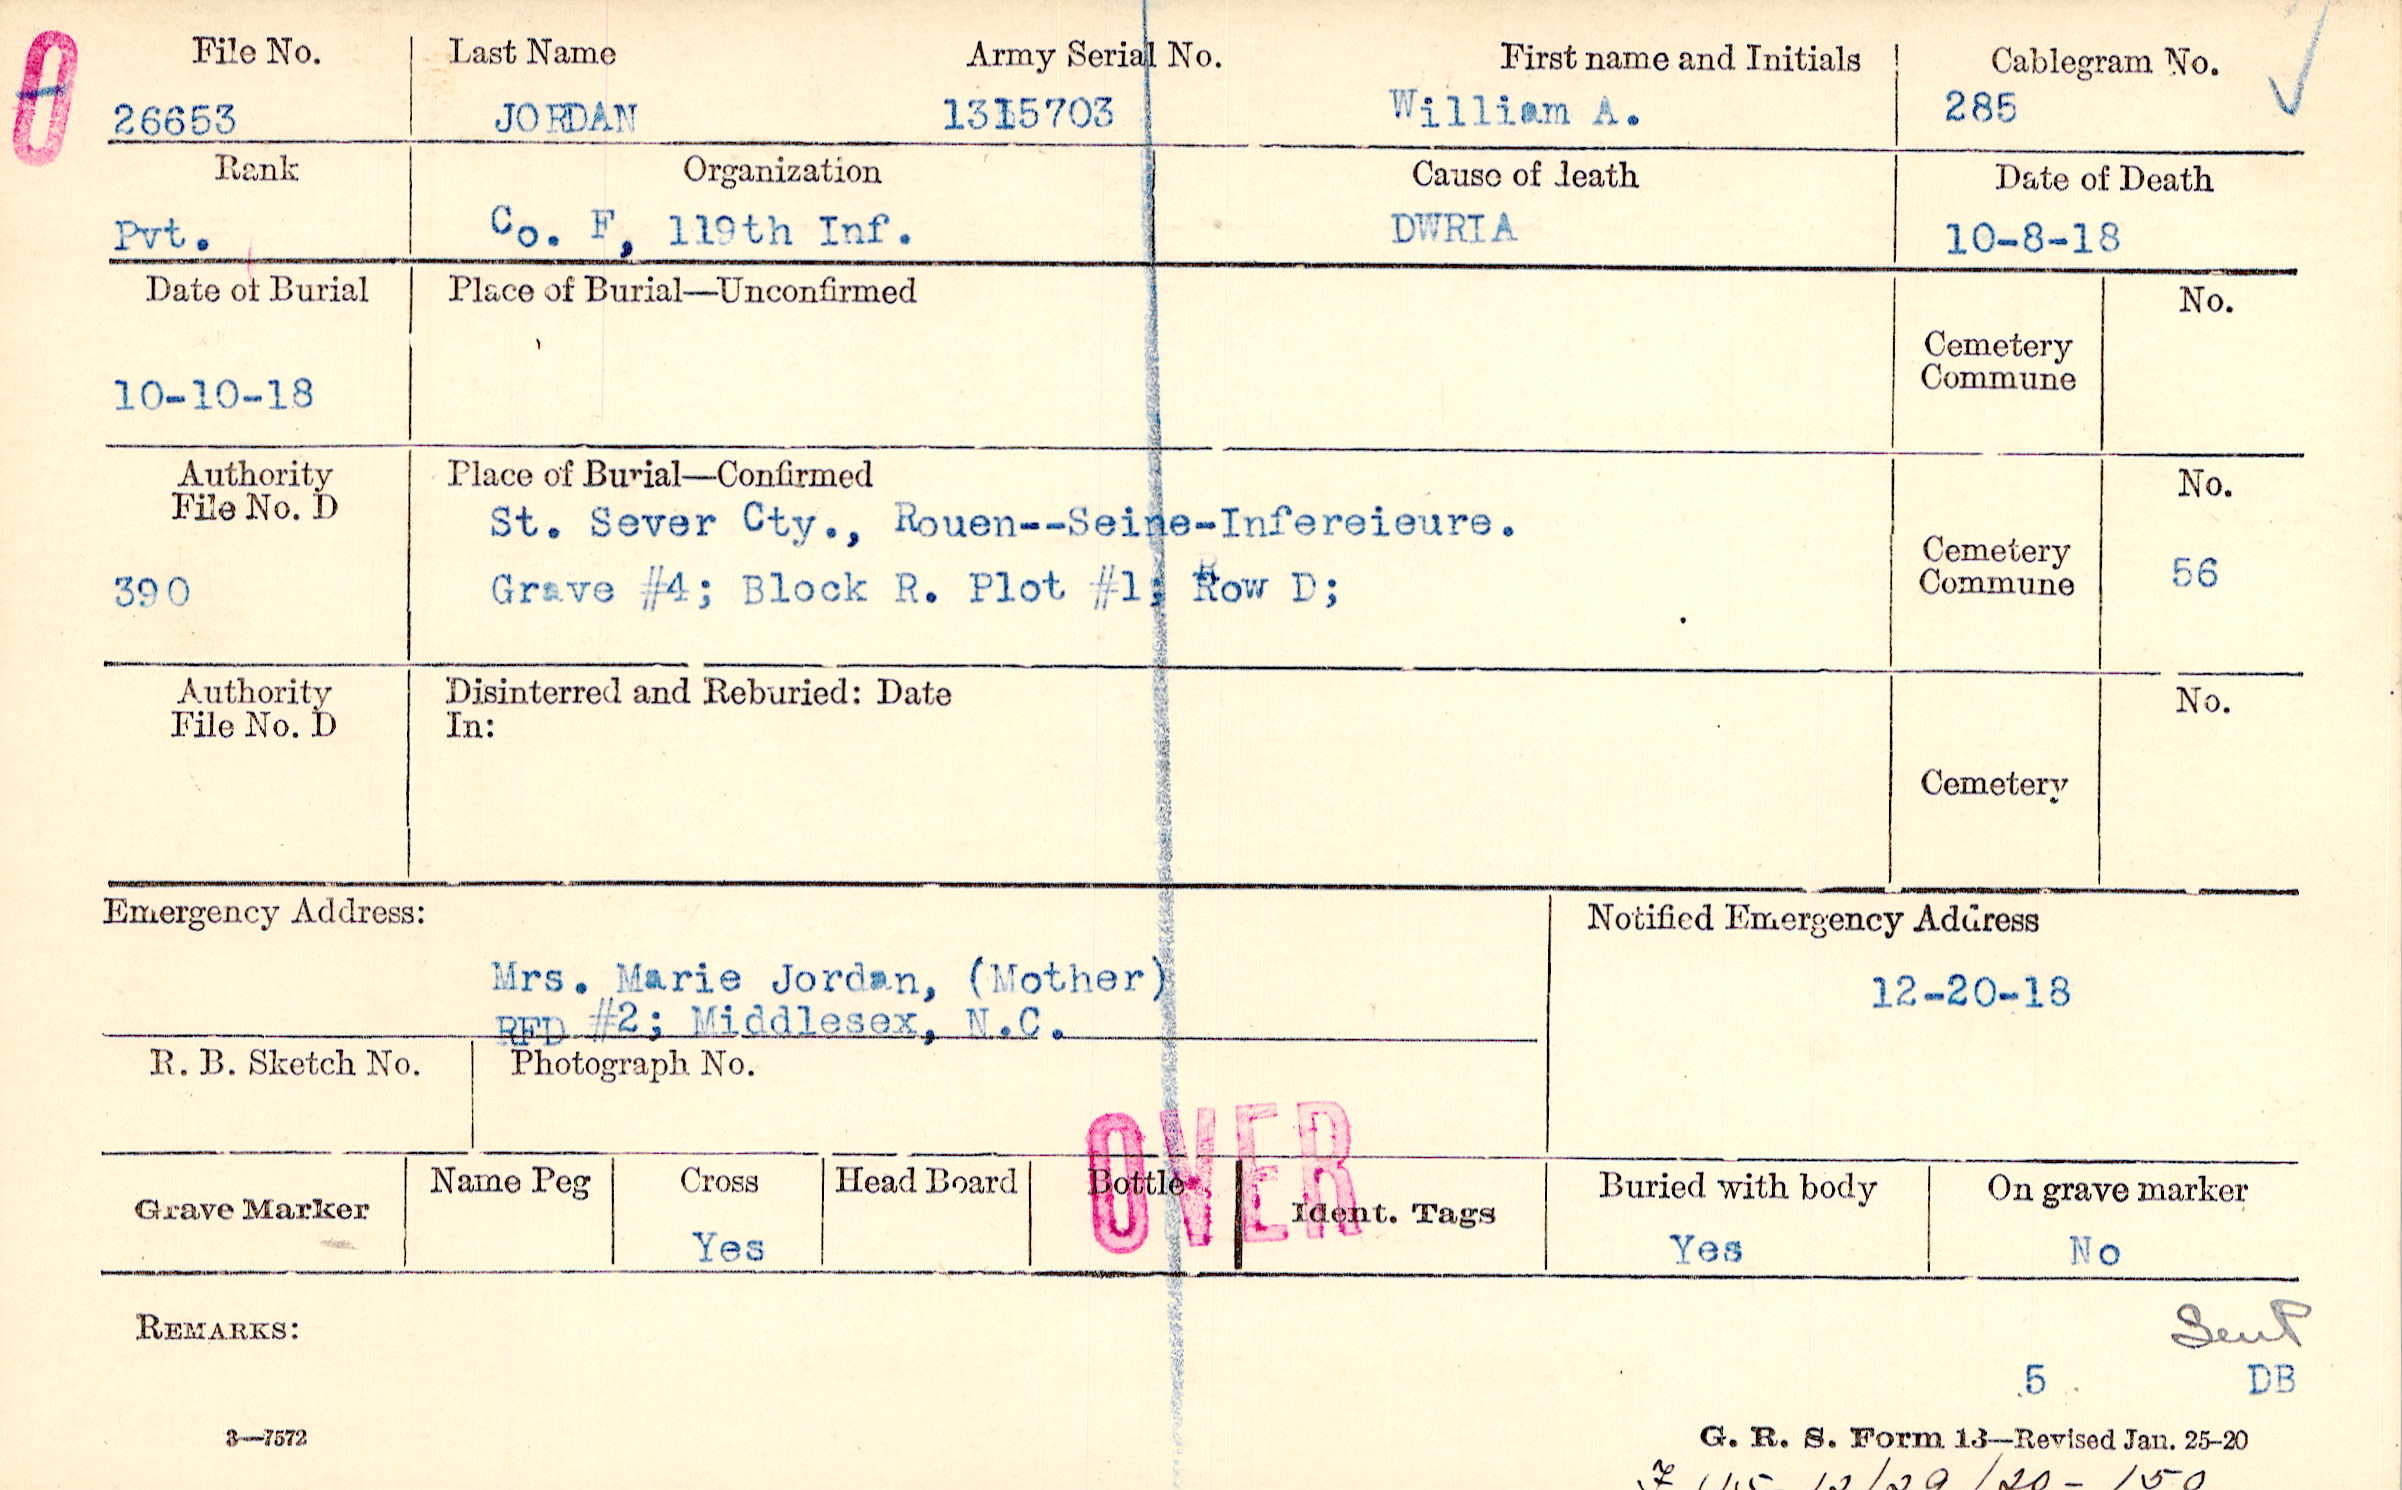 File No. Last Name Army Serial No. First name and Initials Cablegram No.
26653 JORDAN 1315703 William A. 285
Rank Organization Cause of death Date of Death
Pvt. Co. F, 119th Inf. DWRIA 10-8-18
Date of Burial Place of Burial—Unconfirmed No.
Cemetery
Commune
10-10-18
Authority Place of Burial—Confirmed No.
File No. D
St. Sever Cty., Rouen--Seine-Infereieure.
Cemetery
Commune 56
390 Grave #4; Block R. Plot #1; Row D;
Authority Disinterred and Reburied: Date No.
File No. D In:
Cemetery
Emergency Address: Notified Emergency Address
Mrs. Marie Jordan, (Mother) 12-20-18
RFD #2; Middlesex, N.C.
R. B. Sketch No. Photograph No.
OVER
Grave Marker Name Peg Cross Head Board Bottle Ident. Tags Buried with body On grave marker
Yes Yes No
REMARKS:
Sent
5 DB
3—7572 G. R. S. Form 13—Revised Jan. 25-20